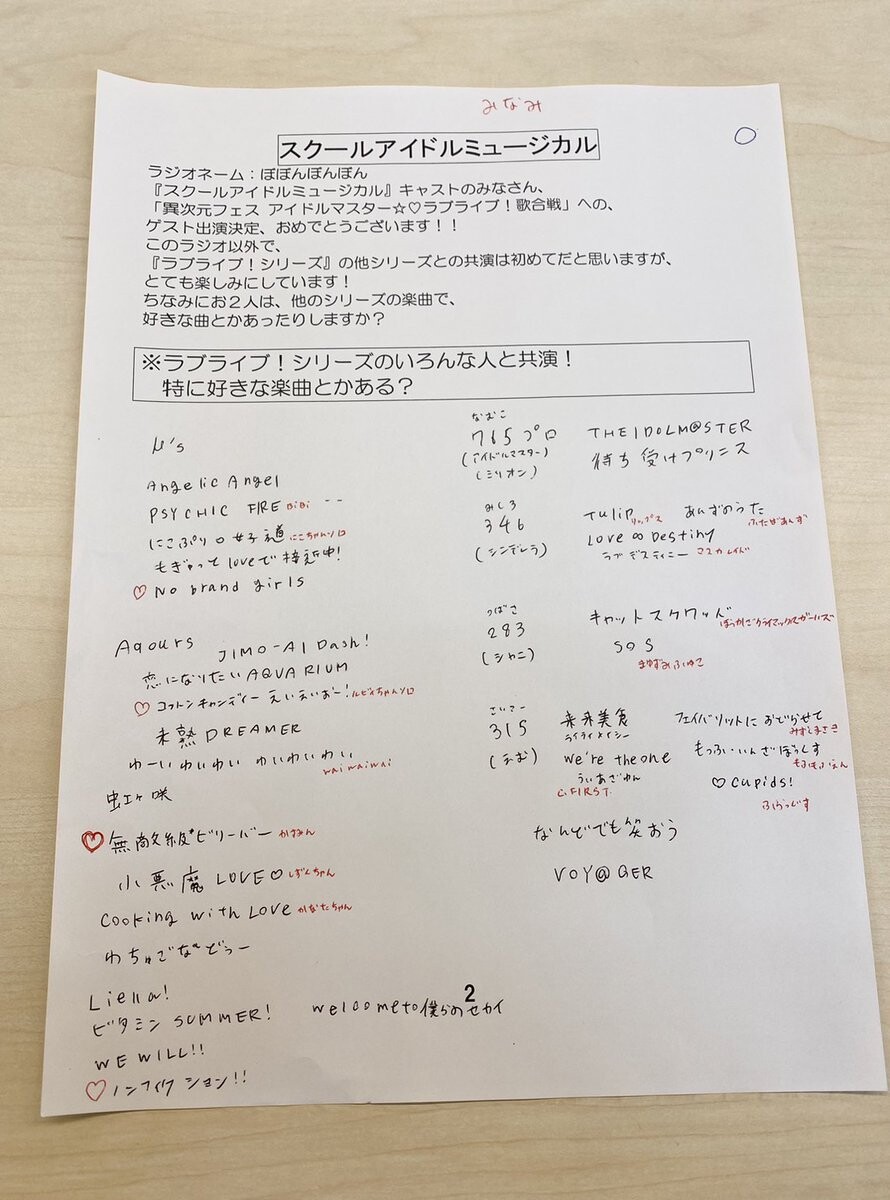 みなみ
スクールアイドルミュージカル
ラジオネーム：ぽぽんぽんぽん
『スクールアイドルミュージカル』キャストのみなさん、
「異次元フェス アイドルマスター☆♡ラブライブ！歌合戦」への、
ゲスト出演決定、おめでとうございます！！
このラジオ以外で、
『ラブライブ！シリーズ』の他シリーズとの共演は初めてだと思いますが、
とても楽しみにしています！
ちなみにお２人は、他のシリーズの楽曲で、
好きな曲とかあったりしますか？
※ラブライブ！シリーズのいろんな人と共演！
特に好きな楽曲とかある？
μ's
Angelic Angel
PSYCHIC FIRE BiBi
にこぷり♡女子道 にこちゃんソロ
もぎゅっとloveで接近中!
♡ No brand girls
Aqours JIMO-AI Dash!
恋になりたいAQUARIUM
♡ コットンキャンディーえいえいおー! ルビィちゃんソロ
未熟DREAMER
わーい わいわい わいわいわい
waiwaiwai
虹ヶ咲
♡ 無敵級*ビリーバー かすみん
小悪魔LOVE♡ しずくちゃん
Cooking with Love かなたちゃん
わちゅごなどぅー
Liella!
ビタミンSUMMER!
WE WILL!!
♡ ノンフィクション!!
2
welcometo僕らのセカイ
なむこ
765プロ
(アイドルマスター)
(ミリオン)
THE IDOLM@STER
待ち受けプリンス
みしろ
346
(シンデレラ)
Tulip リップス あんずのうた ふたばあんず
Love∞Destiny
ラブデスティニー マスカレイド
つばさ
283
(シャニ)
キャットスクワッド ほうかごクライマックスガールズ
SOS
まゆずみふゆこ
さいこー
315
(えむ)
未来美食
ライライメイシー
we're the one
ういあざわん
C.FIRST.
フェイバリットにおどらせて
みずしまさき
もっふ・いんざぼっくす
もふもふえん
♡ Cupids!
ふらっぐす
なんどでも笑おう
VOY@GER